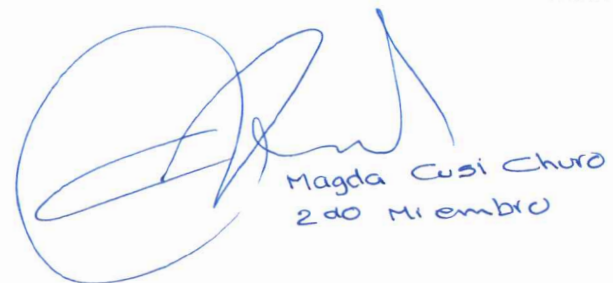 Magda Cusi Churo
2do Miembro